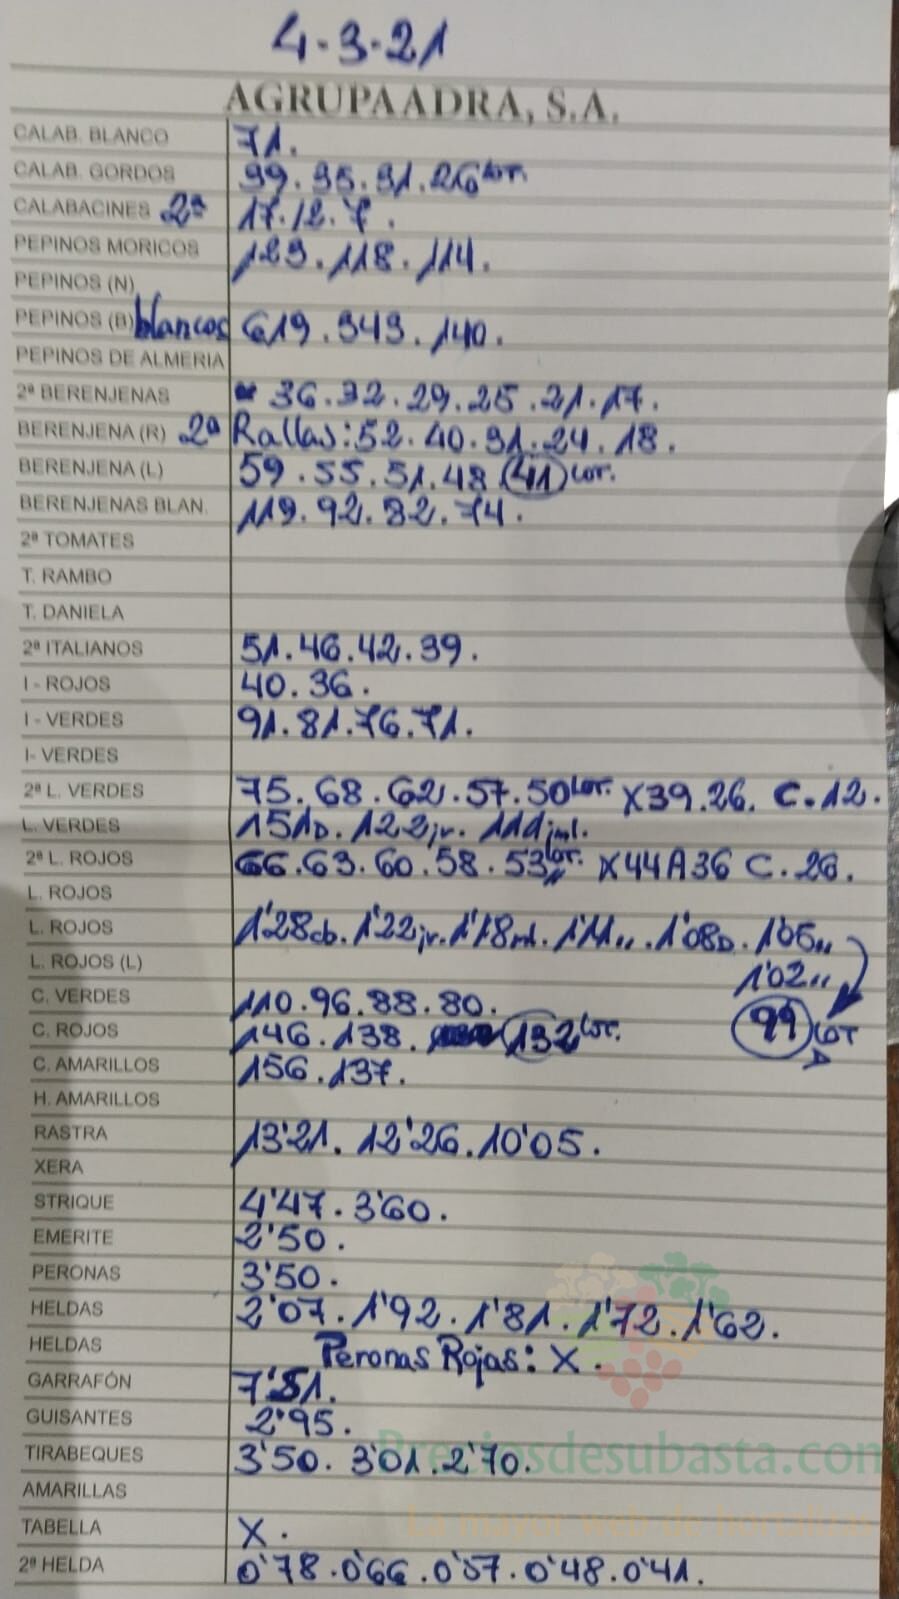 4-3-21
AGRUPAADRA, S.A.
CALAB. BLANCO 71.
CALAB. GORDOS 39.35.31.26 cor.
CALABACINES 2ª 17.12.7.
PEPINOS MORICOS 123.118.114.
PEPINOS (N)
PEPINOS (B) blancos 619.343.140.
PEPINOS DE ALMERIA
2ª BERENJENAS 36.32.29.25.21.17.
BERENJENA (R) 2ª Rallas: 52.40.31.24.18.
BERENJENA (L) 59.55.51.48.41 cor.
BERENJENAS BLAN. 119.92.82.74.
2ª TOMATES
T. RAMBO
T. DANIELA
2ª ITALIANOS 51.46.42.39.
I - ROJOS 40.36.
I - VERDES 91.81.76.71.
I- VERDES
2ª L. VERDES 75.68.62.57.50 cor. X39.26. C.12.
L. VERDES 151D. 122jr. 111
2ª L. ROJOS 66.63.60.58.53 cor. X44A36 C.26.
L. ROJOS
L. ROJOS 1'28cb. 1'22jr. 1'18ml. 1'11,,. 1'08D. 1'05,,
L. ROJOS (L) 1'02,,
C. VERDES 110.96.88.80.
C. ROJOS 146.138. 132 cor. 99 cor
C. AMARILLOS 156.137.
H. AMARILLOS
RASTRA 13'21. 12'26. 10'05.
XERA
STRIQUE 4'47. 3'60.
EMERITE 2'50.
PERONAS 3'50.
HELDAS 2'07. 1'92. 1'81. 1'72. 1'62.
HELDAS Peronas Rojas: X.
GARRAFÓN 7'51.
GUISANTES 2'95.
TIRABEQUES 3'50. 3'01. 2'70.
Preciosdesubasta.com
AMARILLAS
La mayor web de hortalizas
TABELLA X.
2ª HELDA 0'78. 0'66. 0'57. 0'48. 0'41.